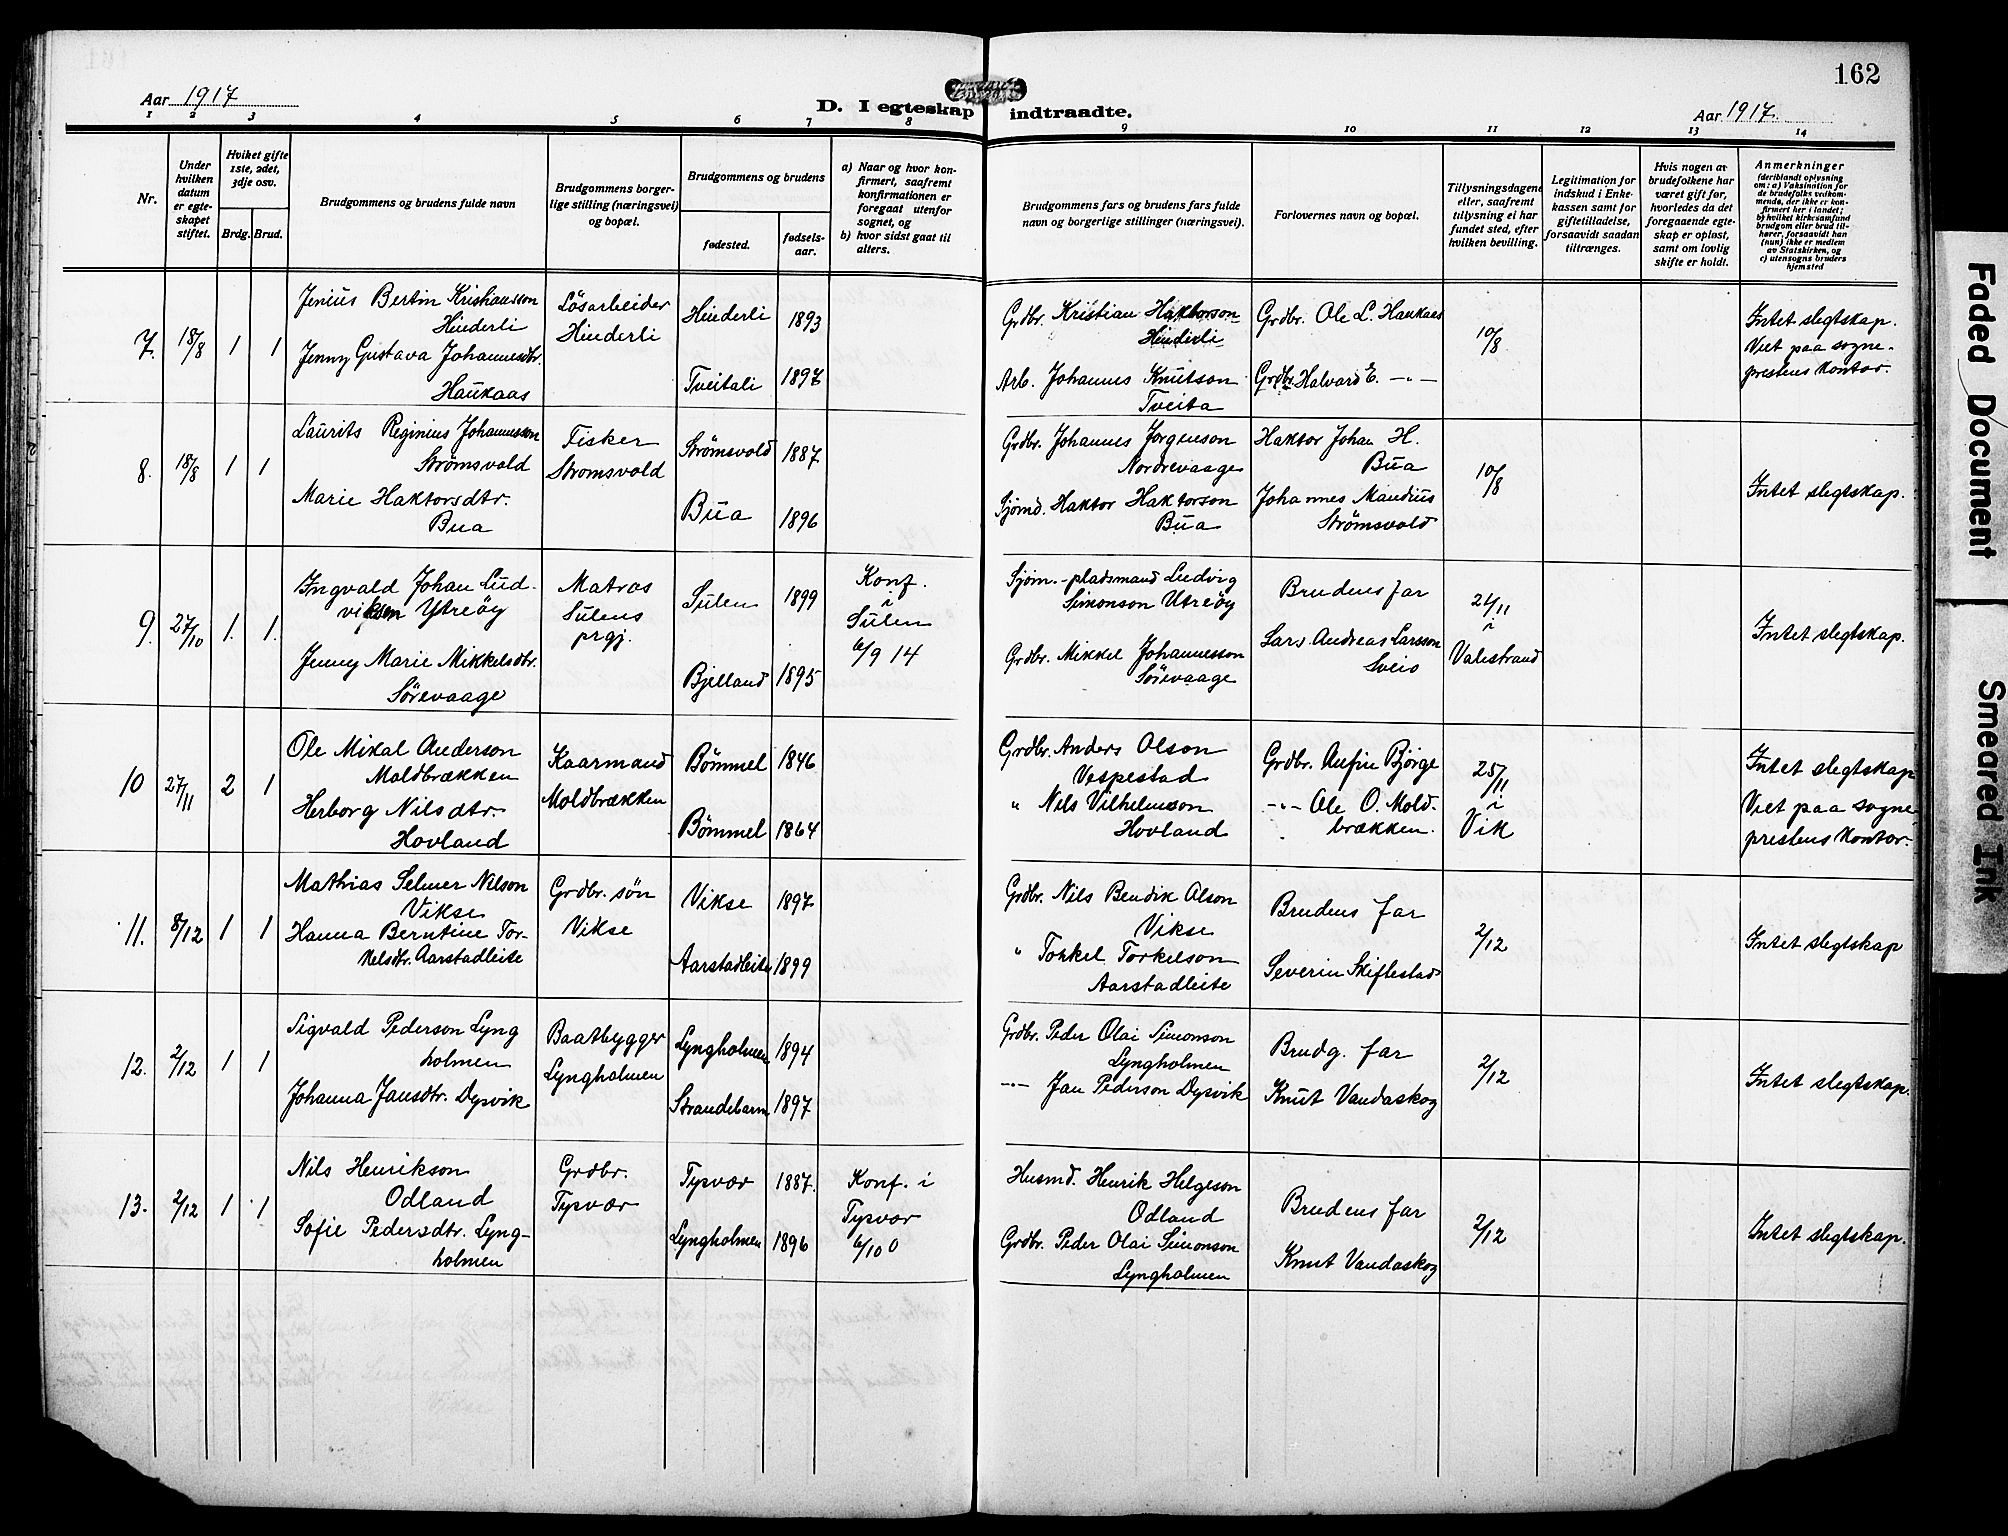 162
Aar 1917
D. I egteskap indtraadte.
Aar 1917.
1 2 3 4 5 6 7 8 9 10 11 12 13 14
Nr.
Under hvilken datum er egteskapet stiftet.
Hviket gifte 1ste, 2det, 3dje osv.
Brdg. Brud.
Brudgommens og brudens fulde navn
Brudgommens borgerlige stilling (næringsvei) og bopæl.
Brudgommens og brudens
fødested.
fødselsaar.
a) Naar og hvor konfirmert, saafremt konfirmationen er foregaat utenfor sognet, og
b) hvor sidst gaat til alters.
Brudgommens fars og brudens fars fulde navn og borgerlige stillinger (næringsvei).
Forlovernes navn og bopæl.
Tillysningsdagene eller, saafremt tillysning ei har fundet sted, efter hvilken bevilling.
Legitimation for indskud i Enkekassen samt for giftetilladelse, forsaavidt saadan tiltrænges.
Hvis nogen av brudefolkene har været gift før, hvorledes da det foregaaende egteskap er opløst, samt om lovlig skifte er holdt.
Anmerkninger
(deriblandt oplysning om: a) Vaksination for de brudefolks vedkommende, der ikke er konfirmert her i landet; b) hvilket kirkesamfund brudgom eller brud tilhører, forsaavidt han (hun) ikke er medlem av Statskirken, og c) utensogns bruders hjemsted
7. 18/8 1 1
Jenius Bertin Kristiansson
Hinderli
Jenny Gustava Johannesdtr.
Haukaas
Løsarbeider
Hinderli
Hinderli 1893
Tveitali 1897
Grdbr. Kristian Haktorson
Hinderli
Arb. Johannes Knutson
Tveita
Grdbr. Ole L. Haukaas
Grdbr. Halvard E. -"-
10/8
Intet slegtskap.
Viet paa sogne-
prestens kontor.
8. 18/8 1 1
Laurits Reginius Johannesson
Strømsvold
Marie Haktorsdtr.
Bua
Fisker
Strømsvold
Strømsvold 1887
Bua 1896
Grdbr. Johannes Jørgenson
Nordrevaage
Sjømd. Haktor Haktorson
Bua
Haktor Johan H.
Bua
Johannes Mandius
Strømsvold
10/8
Intet slegtskap.
9. 27/10 1. 1.
Ingvald Johan Lud-
viksen Ytreøy
Jenny Marie Mikkelsdtr.
Sørevaage
Matros
Sulens
prgj.
Sulen 1899
Bjelland 1895
Konf.
i
Sulen
6/9 14
Sjøm.-pladsmand Ludvig
Simonson Utreøy
Grdbr. Mikkel Johannesson
Sørevaage
Brudens far
Lars Andreas Larsson
Sveio
21/11
i
Valestrand
Intet slegtskap.
10 27/11 2 1
Ole Mikal Anderson
Moldbrækken
Herborg Nilsdtr.
Hovland
Kaarmand
Moldbrækken
Bømmel 1846
Bømmel 1864
Grdbr. Anders Olson
Vespestad
" Nils Vilhelmson
Hovland
Grdbr. Anfin Bjørge
-"- Ole O. Mold-
brækken.
25/11
i
Vik
Intet slegtskap
Viet paa sogne
prestens kontor.
11. 8/12 1 1
Mathias Selmer Nilson
Vikse
Hanna Berntine Tor-
kelsdtr. Aarstadleite
Grdbr. søn
Vikse
Vikse 1897
Aarstadleite 1899
Grdbr. Nils Bendik Olson
Vikse
" Torkel Torkelson
Aarstadleite
Brudens far
Severin Skiftestad
2/12
Intet slegtskap
12. 2/12 1 1
Sigvald Pederson Lyng
holmen
Johanna Jansdtr. Dysvik
Baatbygger
Lyngholmen
Lyngholmen 1894
Strandebarm 1897
Grdbr. Peder Olai Simonson
Lyngholmen
-"- Jan Pederson Dysvik
Brudg. far
Knut Vandaskog
2/12
Intet slegtskap.
13. 2/12 1 1
Nils Henrikson
Odland
Sofie Pedersdtr. Lyng-
holmen
Grdbr.
Tysvær
Tysvær 1887.
Lyngholmen 1896
Konf. i
Tysvær
6/10 0
Husmd. Henrik Helgeson
Odland
Grdbr. Peder Olai Simonson
Lyngholmen
Brudens far
Knut Vandaskog
2/12
Intet slegtskap.
Faded Document
Smeared Ink